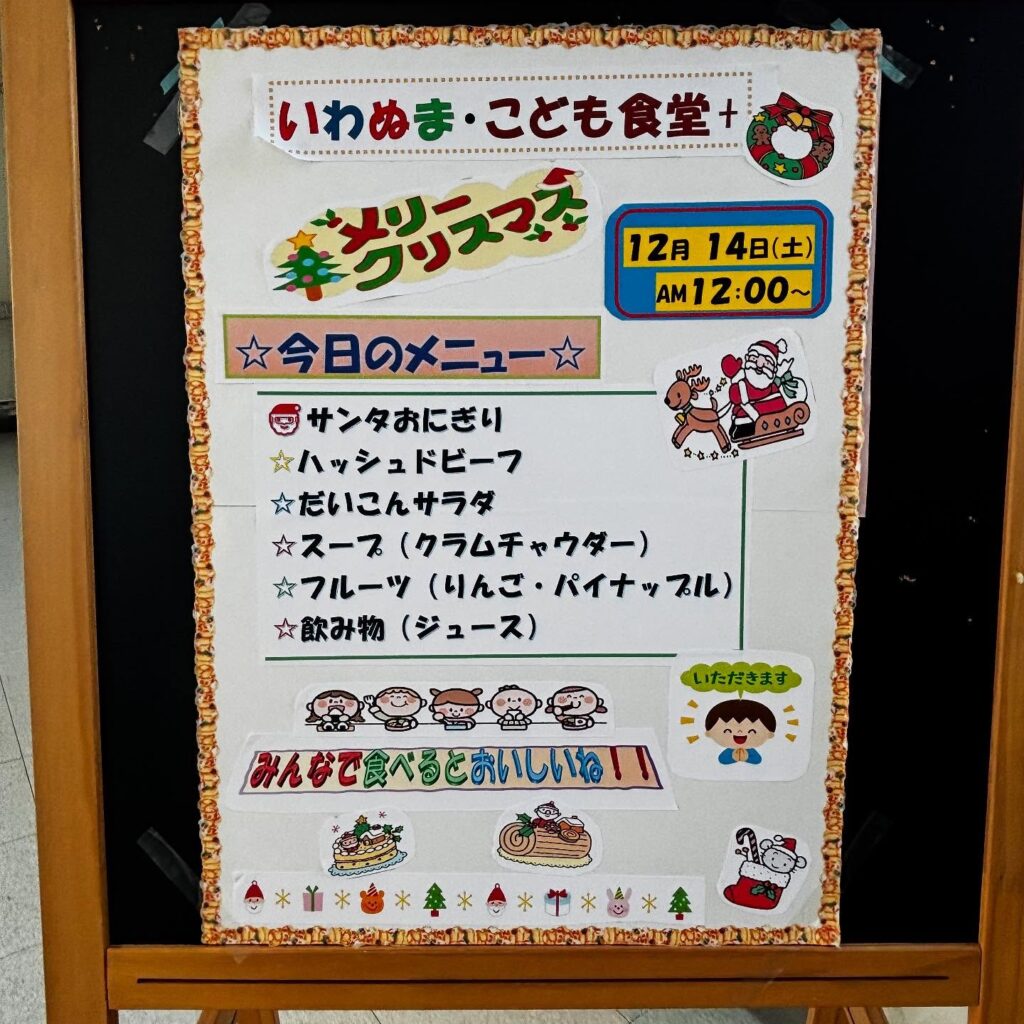 いわぬま・こども食堂+
メリー
クリスマス
12月 14日(土)
AM12:00~
☆今日のメニュー☆
サンタおにぎり
☆ハッシュドビーフ
☆だいこんサラダ
☆スープ(クラムチャウダー)
☆フルーツ(りんご・パイナップル)
☆飲み物(ジュース)
いただきます
みんなで食べるとおいしいね!!